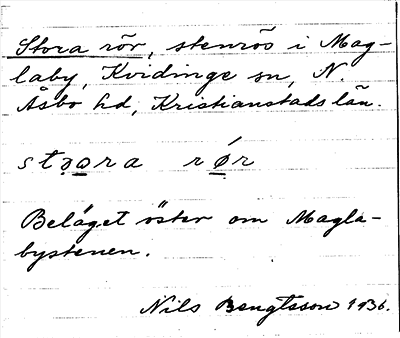 Stora rör, stenrös i Mag-
laby, Kvidinge sn, N.
Åsbo hd, Kristianstads län.
stọo̲ra rǿ̲r
Beläget öster om Magla-
bystenen.
Nils Bengtsson 1936.